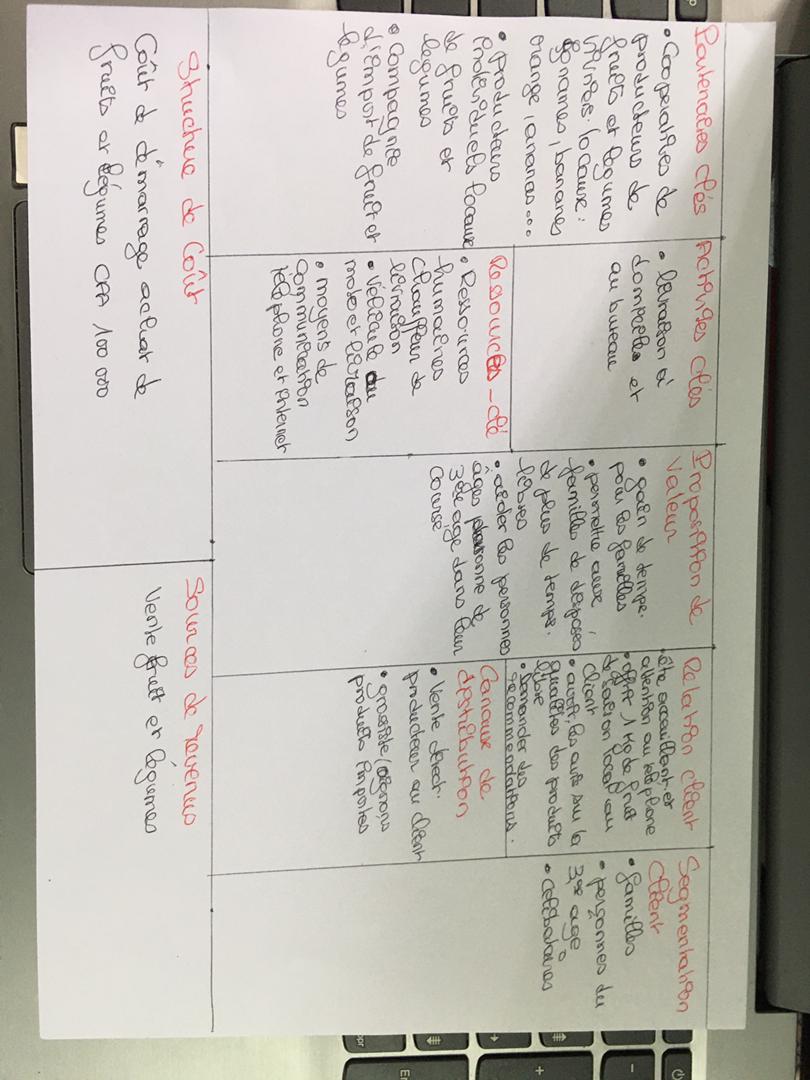 Partenaires clés
• Coopératives de
producteurs de
fruits et légumes
locaux :
ignames, bananes
orange, ananas...
• producteurs
individuels locaux
de fruits et
légumes
• Compagnie
d'import de fruit et
légumes
Activités clés
• livraison à
domiciles et
au bureau
Ressources-clé
• Ressources
humaines
Chauffeur de
livraison
• Véhicule ou
moto et livraison
• moyens de
communication
téléphone et internet
Proposition de
Valeur
• gain de temps.
pour les familles
• permettre aux
familles de disposés
de plus de temps.
libres
• aider les personnes
ages personne de
3ème age dans leur
course
Relation client
• être accueillant et
attention au téléphone
• offrir 1 kg de fruit
de saison local au
client
• avoir les avis sur la
qualités des produits
livré
• Demander des
recommandations.
Canaux de
distribution
• Vente direct.
producteur au client
• grossiste (oignons
produits importés
Segmentation
Client
• familles
• personnes du
3ème age
• Célibataires
Structure de Coût
Coût de démarrage achat de
fruits et légumes CFA 100 000
Sources de revenus
Vente fruit et légumes